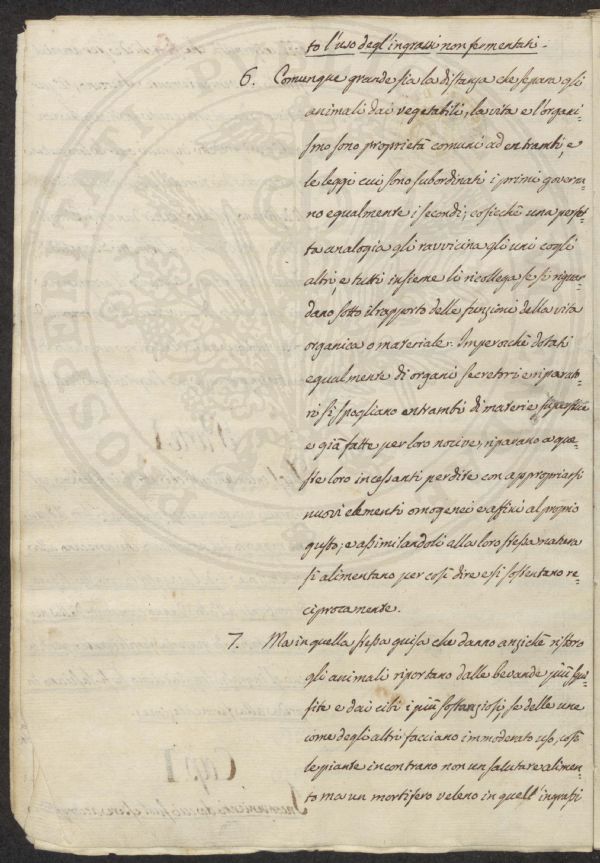 to l'uso degl'ingrassi non fermentati.
6. Comunque grande sia la distanza che separa gli
animali dai vegetabili, la vita e l'organi-
smo sono proprietà comuni ad entrambi, e
le leggi cui sono subordinati i primi governa-
no equalmente i secondi; cosicchè una perfet-
ta analogia gli ravvicina gli uni cogli
altri, e tutti insieme li ricollega se si riguar-
dano sotto il rapporto delle funzioni della vita
organica o materiale. Imperocchè dotati
equalmente di organi secretori e riparato-
ri si spogliano entrambi di materie superflue
e già fatte per loro nocive, riparano a que-
ste loro incessanti perdite con appropriarsi
nuovi elementi omogenei e affini al proprio
gusto; e assimilandoli alla loro stessa natura
si alimentano per così dire e si sostentano re-
ciprocamente.
7. Ma in quella stessa guisa che danno anzichè ristoro
gli animali riportano dalle bevande più squi-
site e dai cibi i più sostanziosi, se delle une
come degli altri facciano immoderato uso, così
le piante incontrano non un salutare alimen-
to ma un mortifero veleno in quell'ingrassi
PROSPERITATI
Cap. I